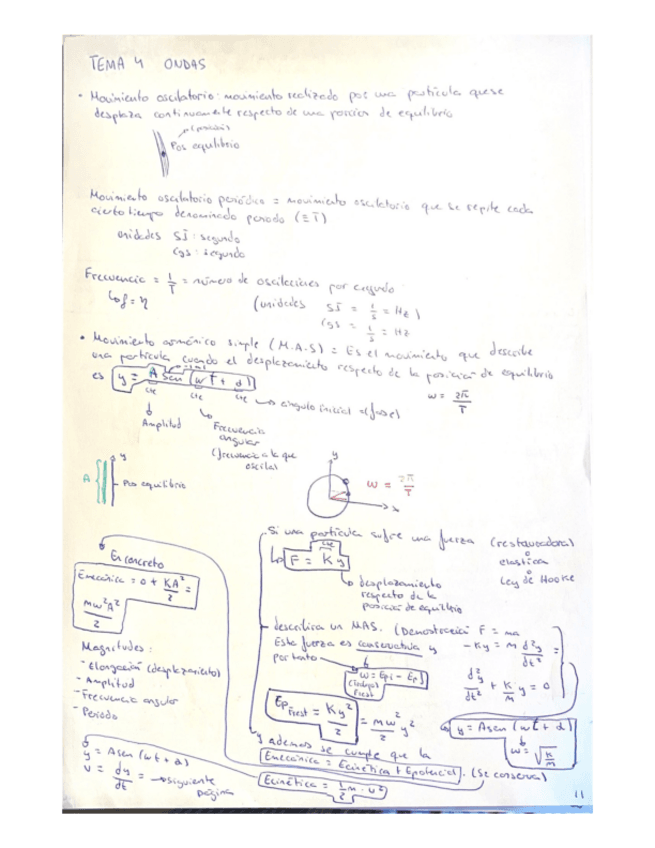 TEMA 4 ONDAS
• Movimiento oscilatorio: movimiento realizado por una partícula que se
desplaza continuamente respecto de una porción de equilibrio
Pos equilibrio
Movimiento oscilatorio periódico = movimiento oscilatorio que se repite cada
cierto tiempo denominado periodo (≡ T)
unidades SI: segundo
CGS: segundo
Frecuencia = 1/T = número de oscilaciones por segundo
(unidades SI = 1/s = Hz)
CGS = 1/s = Hz
• Movimiento armónico simple (M.A.S) = Es el movimiento que describe
una partícula cuando el desplazamiento respecto de la posición de equilibrio
es y = A sen (wt + α)
w = 2π/T
cte cte cte
ángulo inicial = (fase)
Amplitud
Frecuencia
angular
(frecuencia a la que
oscila)
A y
Pos equilibrio
y
x
w = 2π/T
Si una partícula sufre una fuerza (restauradora)
elástica
Ley de Hooke
cte
F = K y
desplazamiento
respecto de la
posición de equilibrio
En concreto
Emecánica = 0 + KA²/2 =
mw²A²/2
describirá un MAS. (Demostración F = ma
Esta fuerza es conservativa y
-Ky = m d²y/dt² =
por tanto
w = Epi - Epf
d²y/dt² + K/m y = 0
Magnitudes:
- Elongación (desplazamiento)
- Amplitud
- Frecuencia angular
- Periodo
Ep Frest = Ky²/2 = mw²/2 y²
y = A sen (wt + α)
w = √K/m
y además se cumple que la
Emecánica = Ecinética + Epotencial. (Se conserva)
y = A sen (wt + α)
v = dy/dt = → siguiente
página
Ecinética = 1/2 m · v²
11